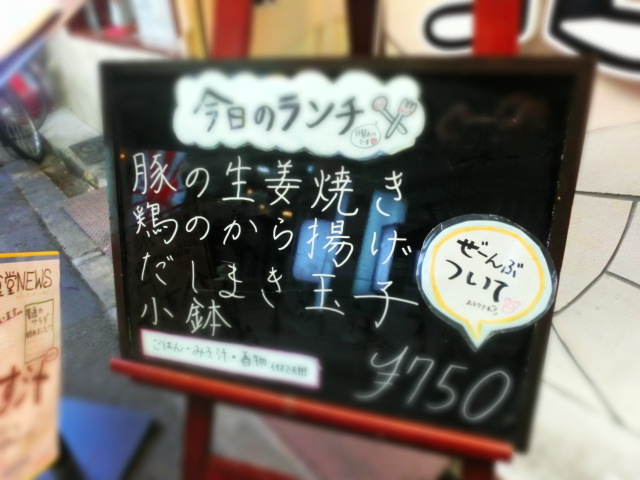 今日のランチ
豚の生姜焼き
鶏のから揚げ
だしまき玉子
小鉢
ぜーんぶ
ついて
ごはん・みそ汁・香物
¥750
食堂NEWS
す汁